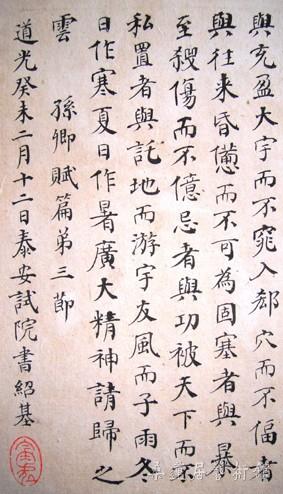 與充盈大宇而不窕入郄穴而不偪者
與往来昏憊而不可為固塞者與暴
至殺傷而不億忌者與功被天下而不
私置者與託地而游宇友風而子雨冬
日作寒夏日作暑廣大精神請歸之
雲 孫卿賦篇第三節
道光癸未二月十二日泰安試院書紹基